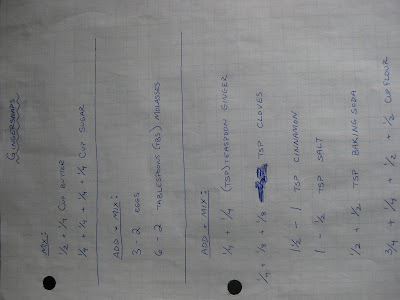 GINGERSNAPS
MIX:
1/2 + 1/4 CUP BUTTER
1/4 + 1/4 + 1/4 + 1/4 CUP SUGAR
ADD + MIX:
3 - 2 EGGS
6 - 2 TABLESPOONS (TBS) MOLASSES
ADD + MIX:
1/4 + 1/4 (TSP) TEASPOON GINGER
1/4 + 1/8 + 1/8 TSP CLOVES
1 1/2 - 1 TSP CINNAMON
1 - 1/2 TSP SALT
1/2 + 1/2 TSP BAKING SODA
3/4 + 1/4 + 1/2 + 1/2 CUP FLOUR